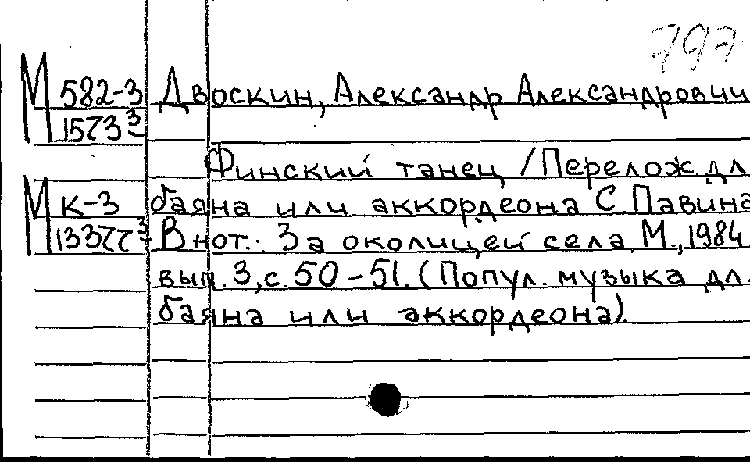 797
М 582-3 Двоскин, Александр Александрович
М 1573³⁻
Финский танец /Перелож дл
М К-3 баяна или аккордеона С Павина
В нот.: За околицей села М., 1984
вып. 3, с. 50-51. (Попул. музыка дл
баяна или аккордеона).